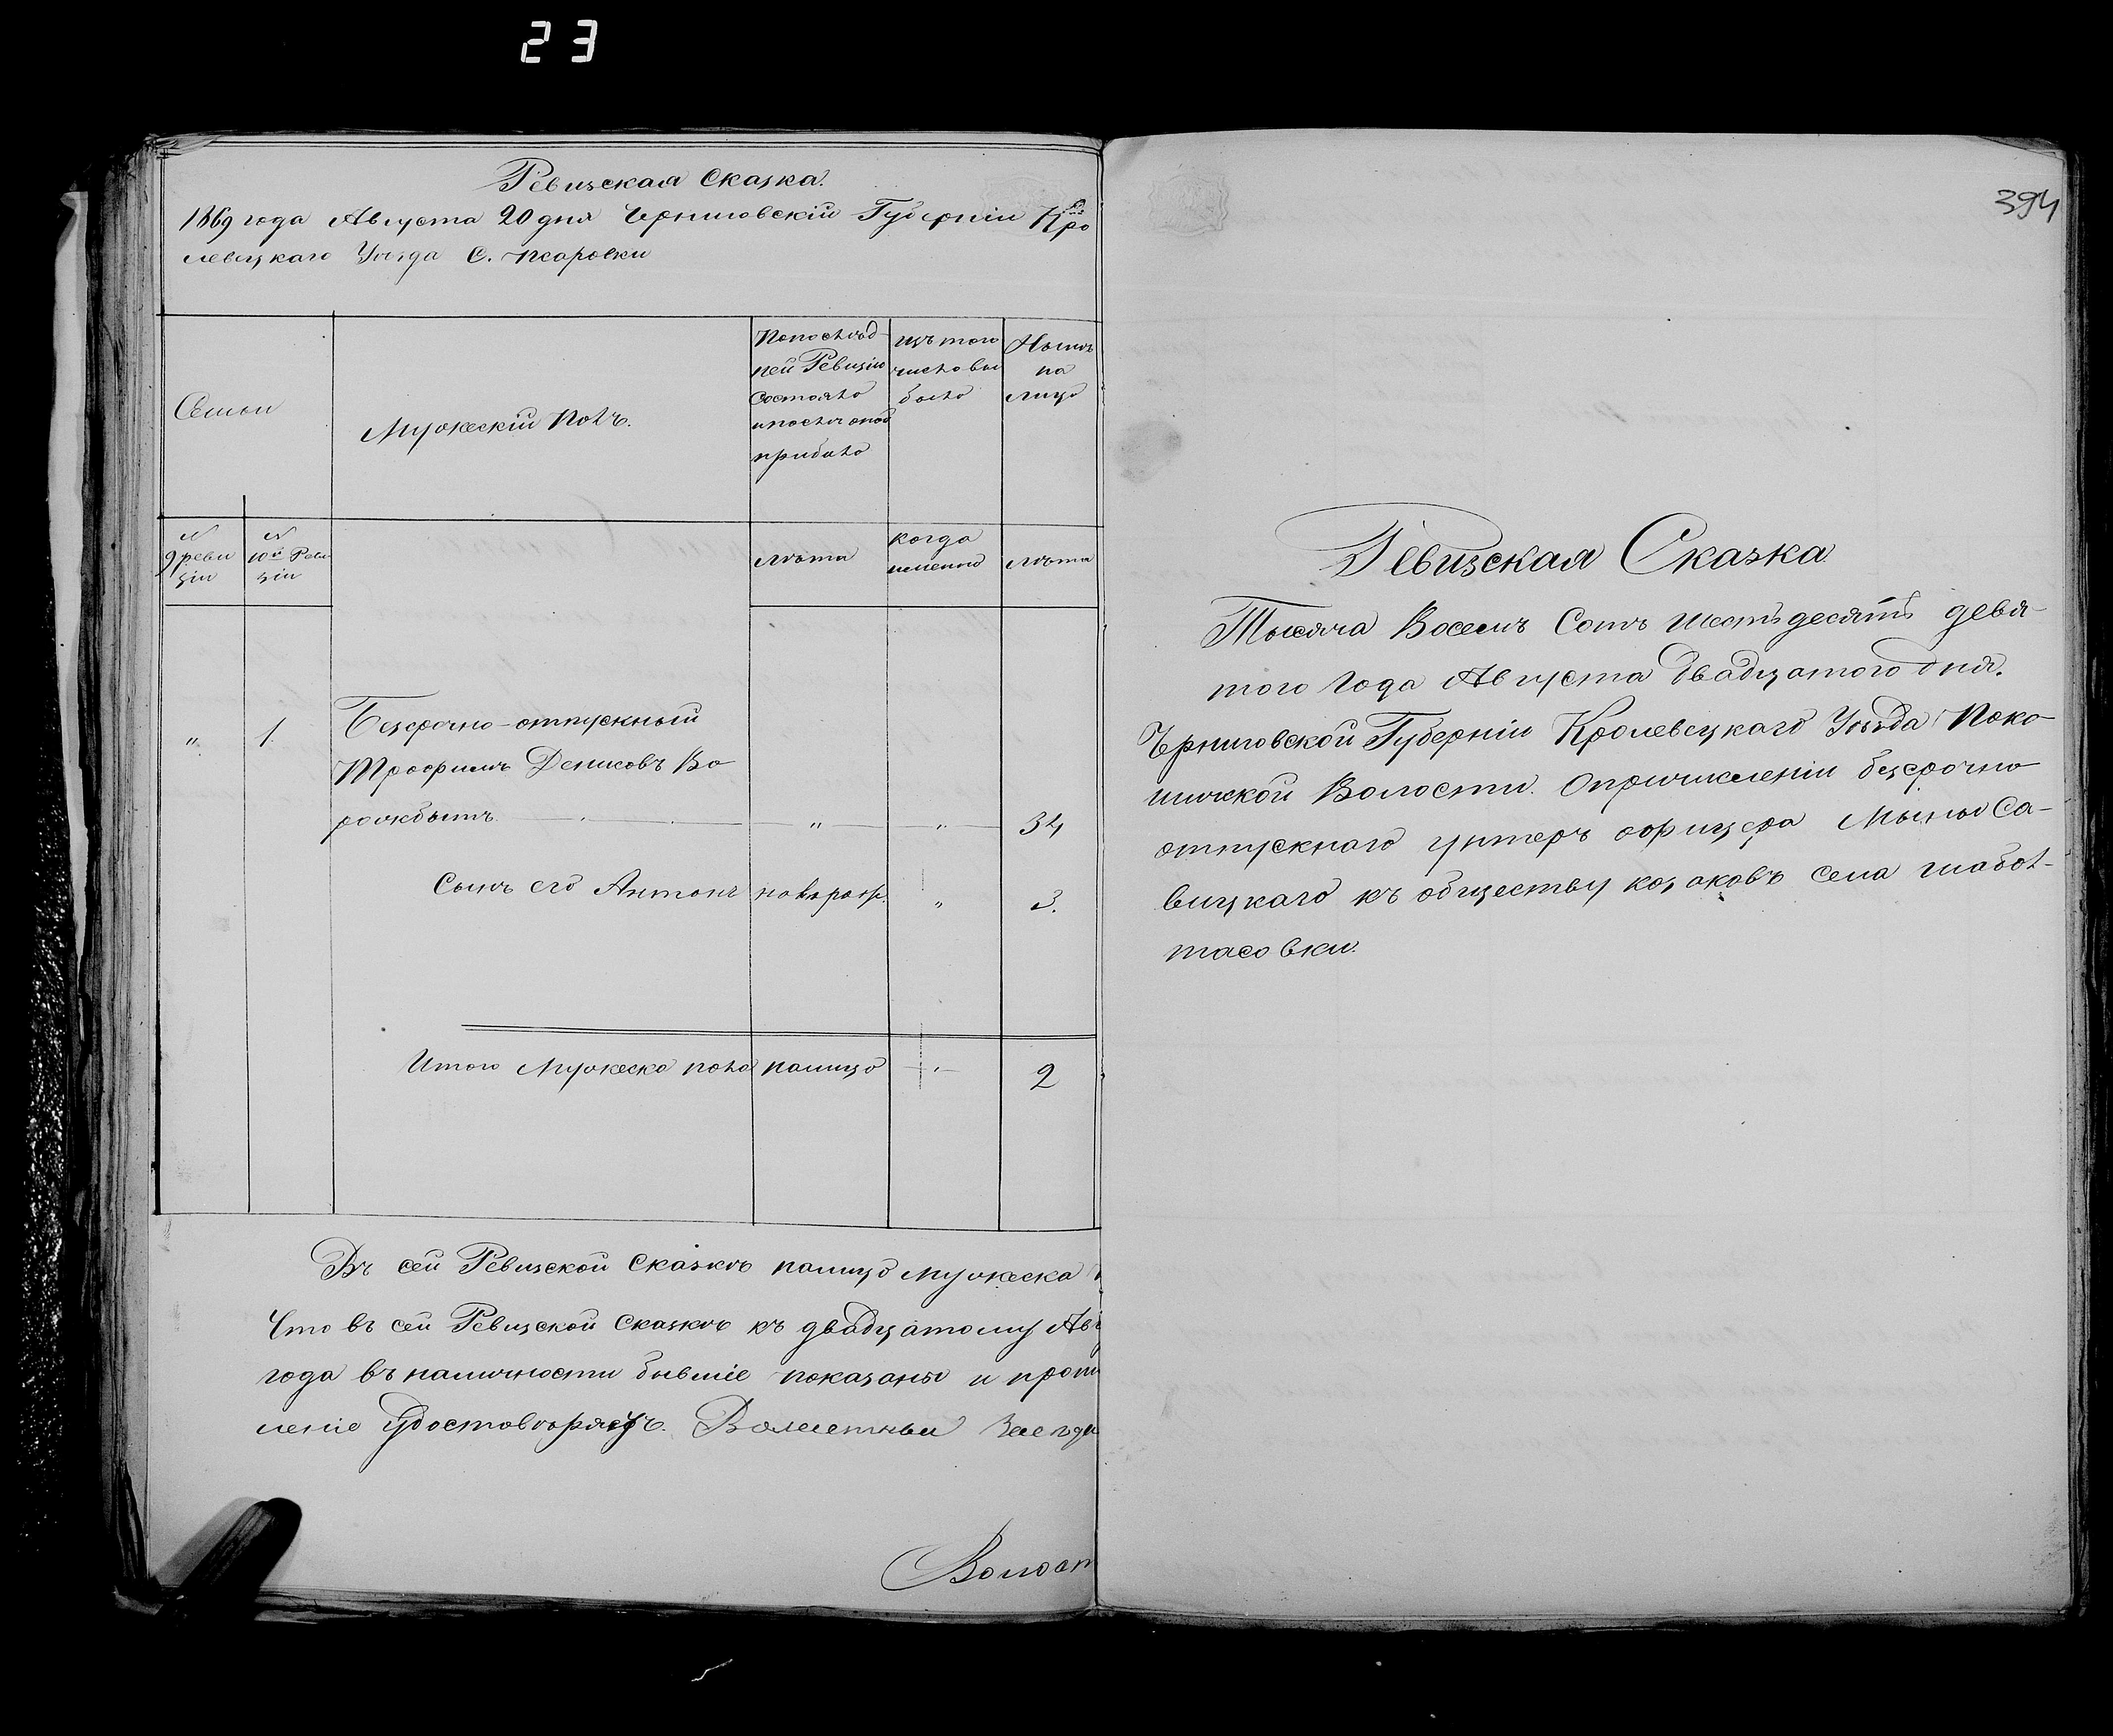 23
Ревизская Сказка.
1869 года Августа 20 дня Черниговскій Губерніи Кро
левецкаго Уѣзда С. Псаровки
Семьи
Мужескій Полъ.
Попослѣд-
ней Ревизіи
состояло
и послѣ оной
прибыло
Изъ того
числа вы
было
Нынѣ
на
лицо
№
9 реви
зіи
№
10й Реви
зіи
лѣта
когда
именно
лѣта
" 1. Безсрочно-отпускный
Трофимъ Денисовъ Во
рожбытъ " " 34
Сынъ его Антонъ новорож. " 3.
Итого Мужеска пола налицо " 2
Въ сей Ревизской Сказкѣ налицо мужеска
Что въ сей Ревизской Сказкѣ къ двадцатому Ав
года въ наличности бывшіе показаны и проп
леніе
Волост
394
Ревизская Сказка
Тысяча Восемъ Сотъ шестьдесятъ девя-
того года Августа двадцатого дня.
Черниговской Губерніи Кролевецкаго Уѣзда Поко
шичской Волости. Опричисленіи безсрочно
отпускнаго унтеръ офицера Мыны Са-
вицкаго къ обществу козаковъ села шабол-
тасовки.